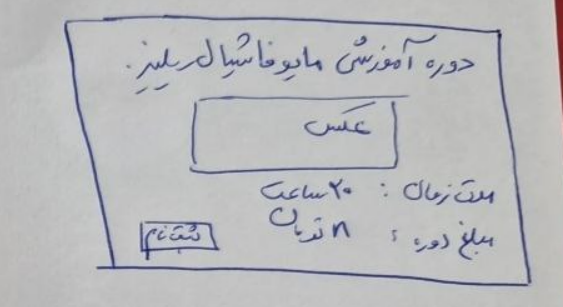 دوره آموزشی مایوفاشیال ریلیز.
عکس
مدت زمان : ۲۰ ساعت
مبلغ دوره : ۸ تومان
ثبت نام